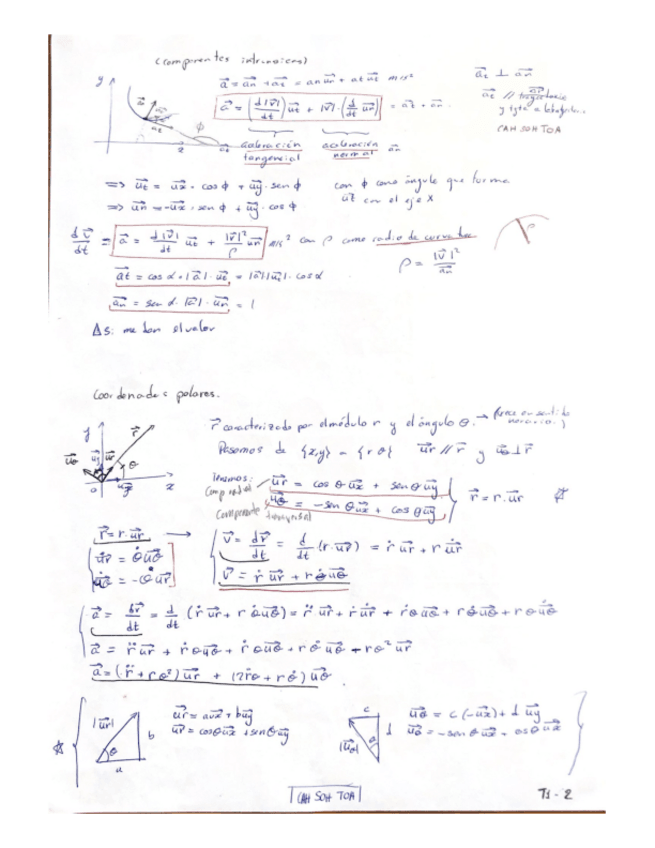 (componentes intrínsecas)
y
a⃗ = a⃗n + a⃗t = an u⃗n + at u⃗t m/s²
a⃗t ⊥ a⃗n
a⃗ = (d|v⃗|/dt) u⃗t + |v⃗| · (d/dt u⃗t) = a⃗t + a⃗n.
a⃗t // trayectoria
CAH SOH TOA
ϕ
x
aceleración tangencial
aceleración normal a⃗n
=> u⃗t = u⃗x · cos ϕ + u⃗y · sen ϕ
con ϕ como ángulo que forma
=> u⃗n = -u⃗x · sen ϕ + u⃗y · cos ϕ
u⃗t con el eje x
dv⃗/dt = a⃗ = d|v⃗|/dt u⃗t + |v⃗|²/ρ u⃗n m/s² con ρ como radio de curvatura
ρ
ρ = |v⃗|²/a⃗n
a⃗t = cos α · |a⃗| · u⃗t = |a⃗| |u⃗t| · cos α
a⃗n = sen α · |a⃗| · u⃗n = |
Δs: me dan el valor
Coordenadas polares.
y
r⃗
u⃗θ
θ
u⃗x
o
x
r⃗ caracterizado por el módulo r y el ángulo θ. → (crece en sentido
horario.)
Pasamos de {x,y} - {r θ} u⃗r // r⃗ y u⃗θ ⊥ r⃗
Tenemos:
Comp radial u⃗r = cos θ u⃗x + sen θ u⃗y
Componente transversal u⃗θ = -sen θ u⃗x + cos θ u⃗y
r⃗ = r · u⃗r ☆
r⃗ = r · u⃗r → v⃗ = dr⃗/dt = d/dt (r · u⃗r) = ṙ u⃗r + r u̇⃗r
u̇⃗r = θ̇ u⃗θ
u̇⃗θ = -θ̇ u⃗r
v⃗ = ṙ u⃗r + r θ̇ u⃗θ
a⃗ = dv⃗/dt = d/dt (ṙ u⃗r + r θ̇ u⃗θ) = r̈ u⃗r + ṙ u̇⃗r + ṙ θ u⃗θ + r θ̇ u⃗θ + r θ u̇⃗θ
a⃗ = r̈ u⃗r + ṙ θ u⃗θ + ṙ θ u⃗θ + r θ̇ u⃗θ + r θ² u⃗r
a⃗ = (r̈ + r θ²) u⃗r + (2ṙθ + r θ̇) u⃗θ
☆
|u⃗r|
θ
a
b
u⃗r = a u⃗x + b u⃗y
u⃗r = cos θ u⃗x + sen θ u⃗y
c
|u⃗θ|
θ
d
u⃗θ = c (-u⃗x) + d u⃗y
u⃗θ = -sen θ u⃗x + cos θ u⃗x
CAH SOH TOA
T1 - 2